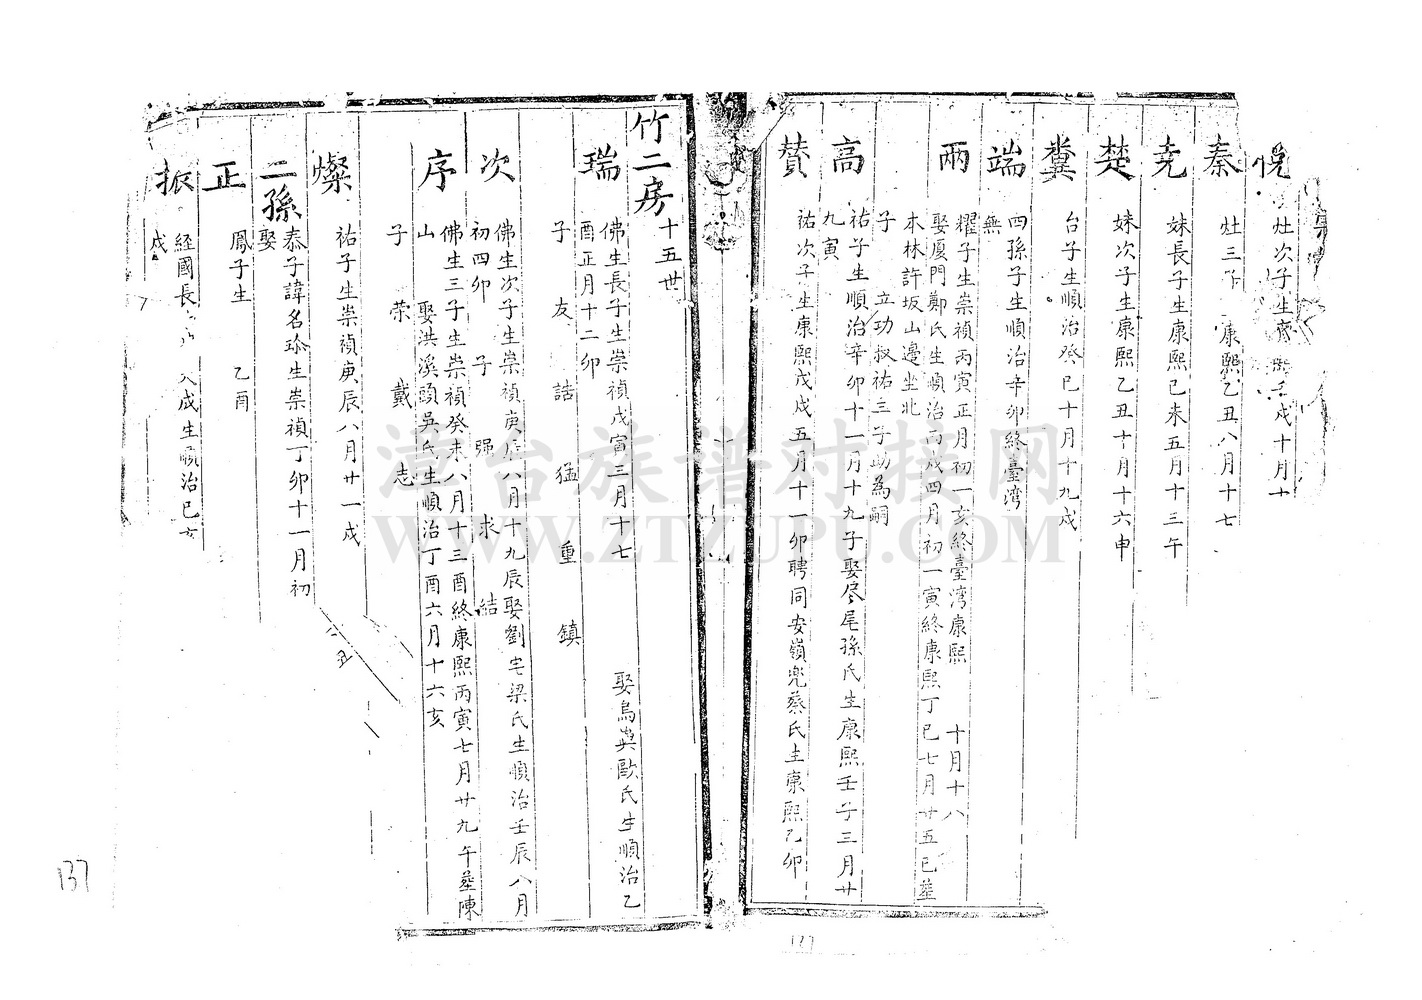 悅
灶次子生康熙壬戌十月十
秦
灶三子 康熙乙丑八月十七
尭
妹長子生康熙己未五月十三午
楚
妹次子生康熙乙丑十月十六申
糞
台子生順治癸巳十月十九戌
端
四孫子生順治辛卯終臺灣
無
兩
耀子生崇禎丙寅正月初一亥終臺灣康熙 十月十八
娶厦門鄭氏生順治丙戌四月初一寅終康熙丁巳七月廿五巳葬
本林許坂山邊坐北
子 立功叔祐三子助為嗣
高
祐子生順治辛卯十一月十九子娶尽尾孫氏生康熙壬子三月廿
九寅
賛
祐次子生康熙戊戌五月十一卯聘同安嶺兜蔡氏生康熙乙卯
竹二房
十五世
瑞
佛生長子生崇禎戊寅三月十七 娶烏 歐氏生順治乙
酉正月十二卯
子 友 誥 猛 重 鎮
次
佛生次子生崇禎庚辰八月十九辰娶劉宅梁氏生順治壬辰八月
初四卯 子 强 求 結
序
佛生三子生崇禎癸未八月十三酉終康熙丙寅七月廿九午葬陳
山 娶洪溪頭吳氏生順治丁酉六月十六亥
子 荣 戴 志
燦
祐子生崇禎庚辰八月廿一戌
二孫
泰子諱名珍生崇禎丁卯十一月初
娶
丑
正
鳳子生 乙酉
振
経國長 大成生順治己亥
戌
137
137
漳台族谱对接网
WWW.ZTZUPU.COM